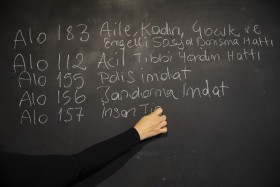 Alo 183 Aile, Kadın, Çocuk ve
Engelli Sosyal Danışma Hattı
Alo 112 Acil Tıbbi Yardım Hattı
Alo 155 Polis imdat
Alo 156 Jandarma İmdat
Alo 157 İnsan Ti